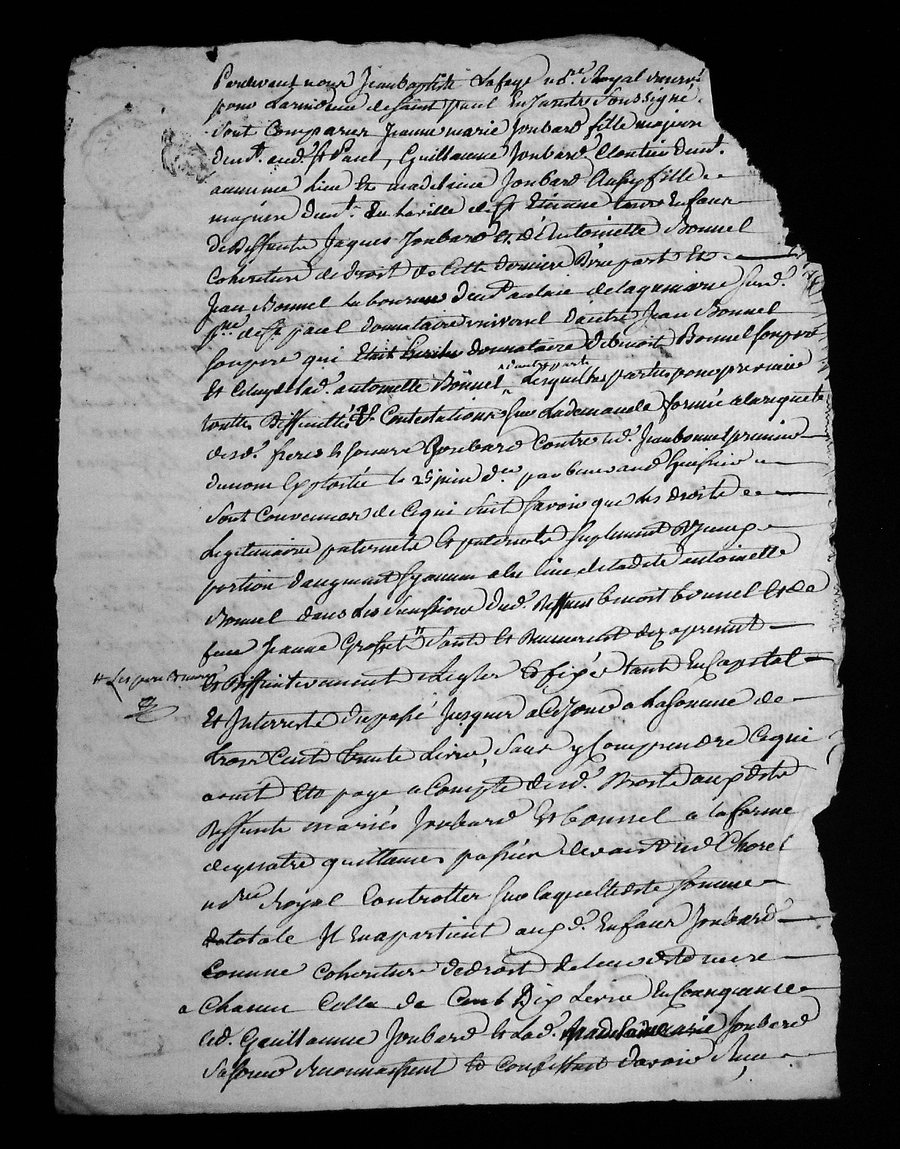 Pardevant nous Jean baptiste Lafaye no.re Royal
pour la residence de Saint paul En Jarestz Soussigné
Sont Comparus Jeanne marie Joubard fille majeure
demt. aud. St Paul, Guillaume Joubard Cloutier demt.
au meme Lieu Et madeleine Joubard Aussy fille
majeure demt. En la ville de St Etienne tous Enfans
de deffunts Jaques Joubard Et de Antoinette Bonnel
Coheritiers de droit de Cette derniere d'une part Et
Jean Bonnel laboureur demt. au lieu de Sur d.
psse de St paul donnataire universel d'autre Jean Bonnel
Son pere qui Etait donnataire de benoit Bonnel Son pere
Et de lad. antoinette Bonnel Lesquelles parties pour prevenir
toutes difficultés Et Contestations Sur La demande formée a la requete
desd. freres Et Soeurs Joubard Contre led. Jean bonnel premier
du nom Exploitée le 25 juin der. par huissier
Sont Convenues de Ce qui Suit Savoir que Les droits
Legitimaires paternels Et maternels Suplement d'yceux
portion d'augment Et de lad. antoinette
Bonnel dans Les Successions dud. deffunt benoit bonnel Et de
feue Jeanne Sont Et demeurent des a present
Les pere Et mere
Et deffinitivement regles Et fixés tant En Capital
Et Interrests du passé Jusques a Ce Jour a la Somme de
trois Cent trente Livres, Sans y Comprendre Ce qui
avait Eté payé a Compte desd. droits auxdits
deffunts mariés Joubard Et bonnel a la forme
de quatre quittances passées devant Me Thorel
no.re Royal Controllées Sur laquelle dite Somme
totale Il En apartient auxd. Enfans Joubard
Comme Coheritiers de droit de leurdite mere
a Chacun Celle de Cent Dix Livres En Consequence
led. Guillaume Joubard Et Lad. Joubard
Sa Soeur Reconnaissent Et Confessent d'avoir Reçu